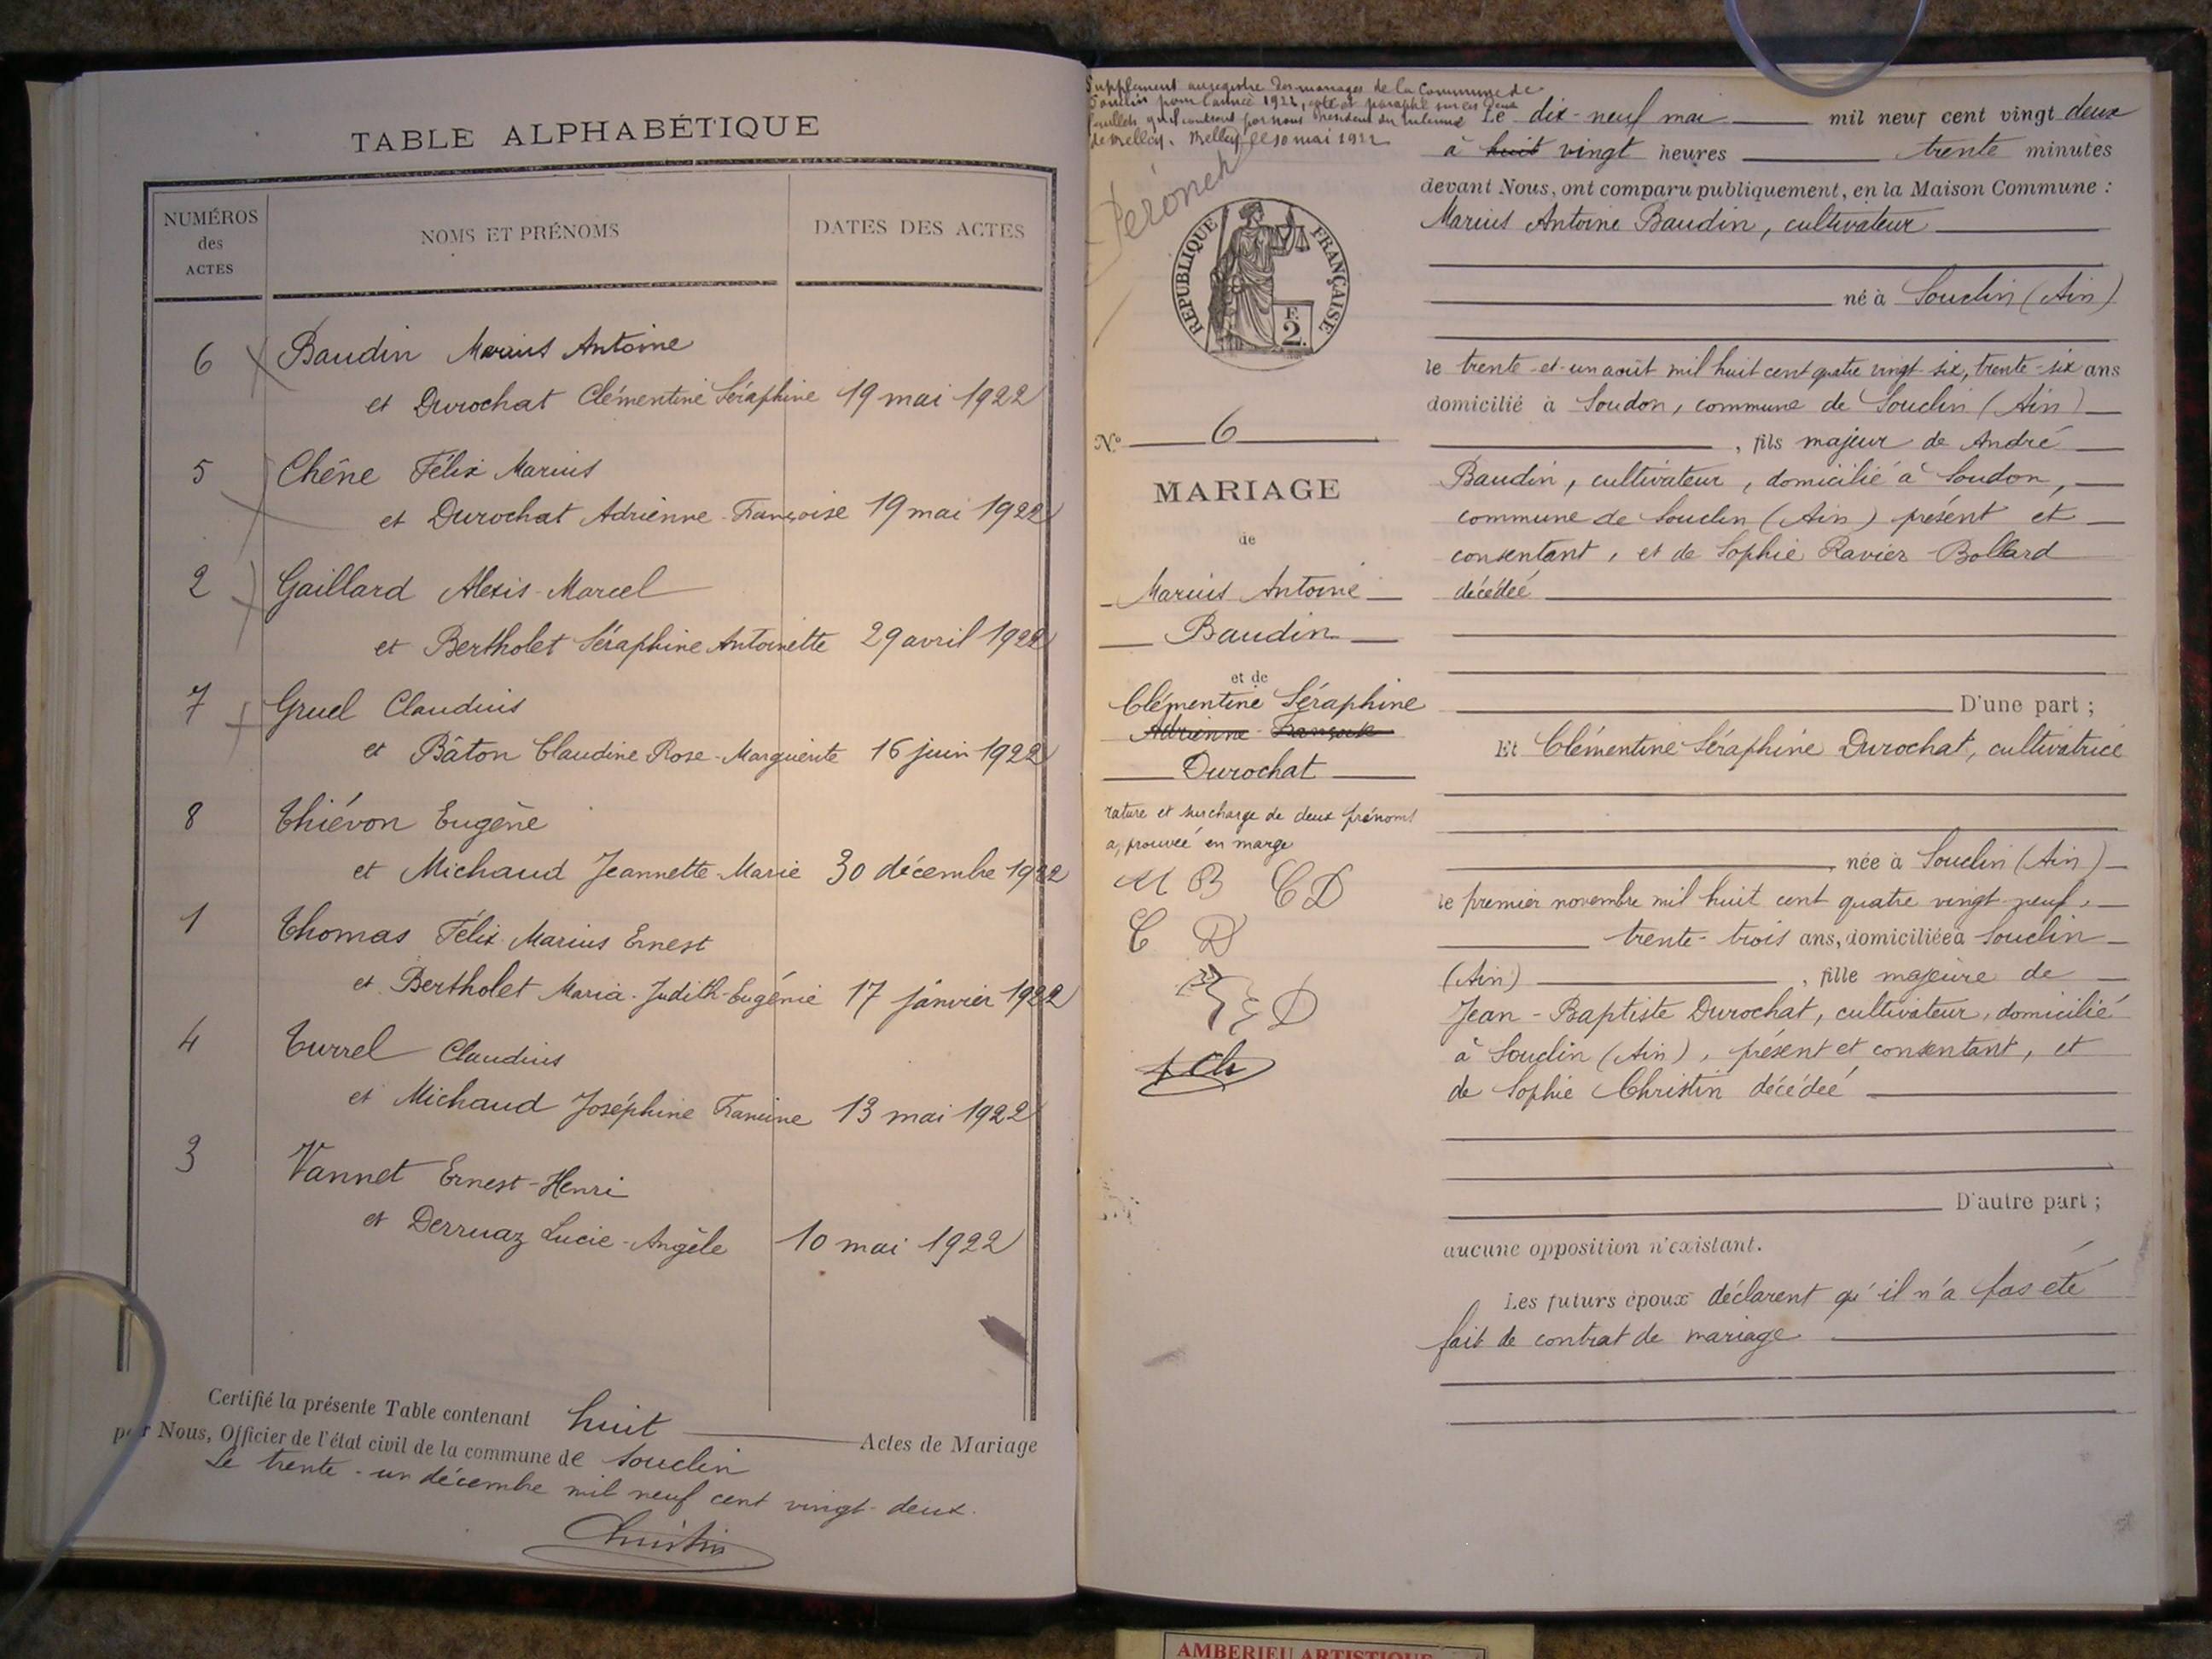 TABLE ALPHABÉTIQUE
NUMÉROS
des
ACTES
NOMS ET PRÉNOMS
DATES DES ACTES
6 Baudin Marius Antoine
et Durochat Clémentine Séraphine 19 mai 1922
5 Chêne Félix Marius
et Durochat Adrienne-Françoise 19 mai 1922
2 Gaillard Alexis-Marcel
et Bertholet Séraphine Antoinette 29 avril 1922
7 Gruel Claudius
et Bâton Claudine Rose-Marguerite 16 juin 1922
8 Thiévon Eugène
et Michaud Jeannette-Marie 30 décembre 1922
1 Thomas Félix Marius Ernest
et Bertholet Maria-Judith-Eugénie 17 janvier 1922
4 Turrel Claudius
et Michaud Joséphine Francine 13 mai 1922
3 Vannet Ernest-Henri
et Derruaz Lucie-Angèle 10 mai 1922
Certifié la présente Table contenant huit Actes de Mariage
par Nous, Officier de l'état civil de la commune de Souclin
Le trente-un décembre mil neuf cent vingt-deux.
Christin
Supplément au registre des mariages de la Commune de
Souclin pour l'année 1922, coté et paraphé sur ces deux
feuillets qu'il contient par nous Président du tribunal
de Belley. Belley le 10 mai 1922
RÉPUBLIQUE FRANÇAISE
F.
2.
No 6
MARIAGE
de
Marius Antoine
Baudin
et de
Clémentine Séraphine
Adrienne Françoise
Durochat
rature et surcharge de deux prénoms
approuvée en marge
M B C D
C D
Le dix-neuf mai mil neuf cent vingt deux
à huit vingt heures trente minutes
devant Nous, ont comparu publiquement, en la Maison Commune :
Marius Antoine Baudin, cultivateur
né à Souclin (Ain)
le trente-et-un août mil huit cent quatre vingt-six, trente-six ans
domicilié à Soudon, commune de Souclin (Ain)
, fils majeur de André
Baudin, cultivateur, domicilié à Soudon,
commune de Souclin (Ain) présent et
consentant, et de Sophie Ravier-Bollard
décédée
D'une part ;
Et Clémentine Séraphine Durochat, cultivatrice
, née à Souclin (Ain)
le premier novembre mil huit cent quatre vingt-neuf,
trente-trois ans, domiciliée à Souclin
(Ain) , fille majeure de
Jean-Baptiste Durochat, cultivateur, domicilié
à Souclin (Ain), présent et consentant, et
de Sophie Christin décédée
D'autre part ;
aucune opposition n'existant.
Les futurs époux déclarent qu'il n'a pas été
fait de contrat de mariage
AMBERIEU ARTISTIQUE